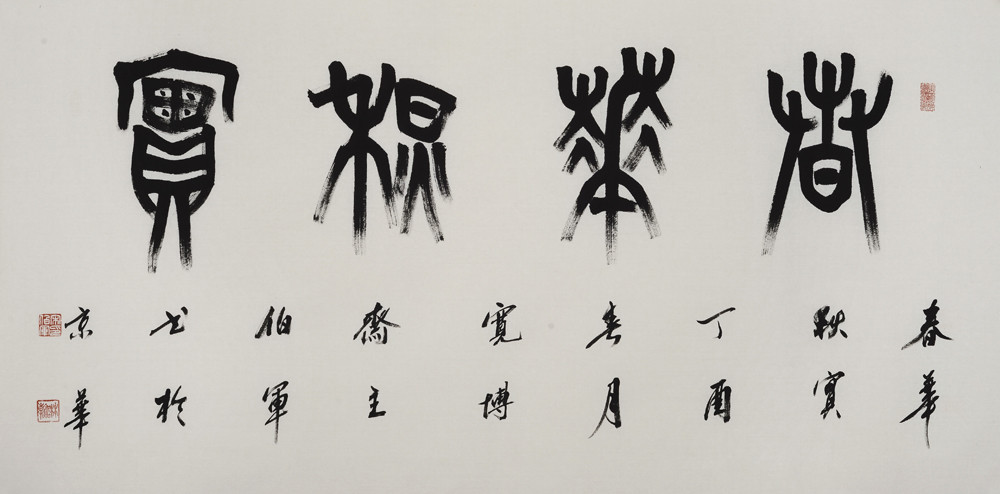 春華秋實
春華
秋實
丁酉
春月
寬博
齋主
伯軍
书於
京華